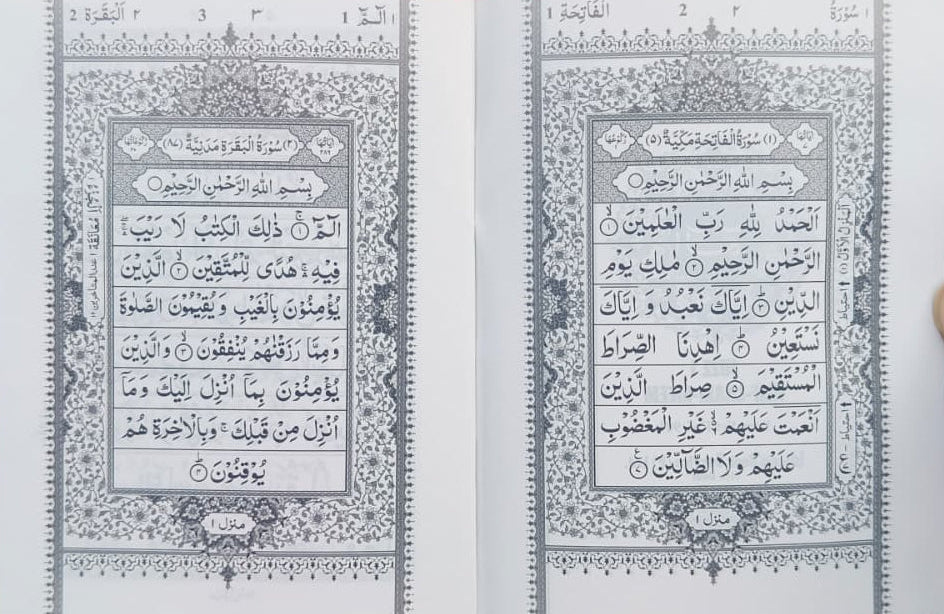 سُوْرَةُ ١
٢
2
اَلْفَاتِحَةِ 1
(١) سُوْرَةُ الْفَاتِحَةِ مَكِّيَّةٌ (٥)
بِسْمِ اللّٰهِ الرَّحْمٰنِ الرَّحِيْمِ
اَلْحَمْدُ لِلّٰهِ رَبِّ الْعٰلَمِيْنَ ١
الرَّحْمٰنِ الرَّحِيْمِ ٢ مٰلِكِ يَوْمِ
الدِّيْنِ ٣ اِيَّاكَ نَعْبُدُ وَ اِيَّاكَ
نَسْتَعِيْنُ ٤ اِهْدِنَا الصِّرَاطَ
الْمُسْتَقِيْمَ ٥ صِرَاطَ الَّذِيْنَ
اَنْعَمْتَ عَلَيْهِمْ ٦ غَيْرِ الْمَغْضُوْبِ
عَلَيْهِمْ وَلَا الضَّآلِّيْنَ ٧
منزل ١
الٓمّٓ ١
1
٣
3
اَلْبَقَرَة ٢
2
(٢) سُوْرَةُ الْبَقَرَةِ مَدَنِيَّةٌ (٨٧)
بِسْمِ اللّٰهِ الرَّحْمٰنِ الرَّحِيْمِ
الٓمّٓ ١ ذٰلِكَ الْكِتٰبُ لَا رَيْبَ
فِيْهِ هُدًى لِّلْمُتَّقِيْنَ ٢ الَّذِيْنَ
يُؤْمِنُوْنَ بِالْغَيْبِ وَيُقِيْمُوْنَ الصَّلٰوةَ
وَمِمَّا رَزَقْنٰهُمْ يُنْفِقُوْنَ ٣ وَالَّذِيْنَ
يُؤْمِنُوْنَ بِمَآ اُنْزِلَ اِلَيْكَ وَمَآ
اُنْزِلَ مِنْ قَبْلِكَ وَبِالْاٰخِرَةِ هُمْ
يُوْقِنُوْنَ ٤
منزل ١